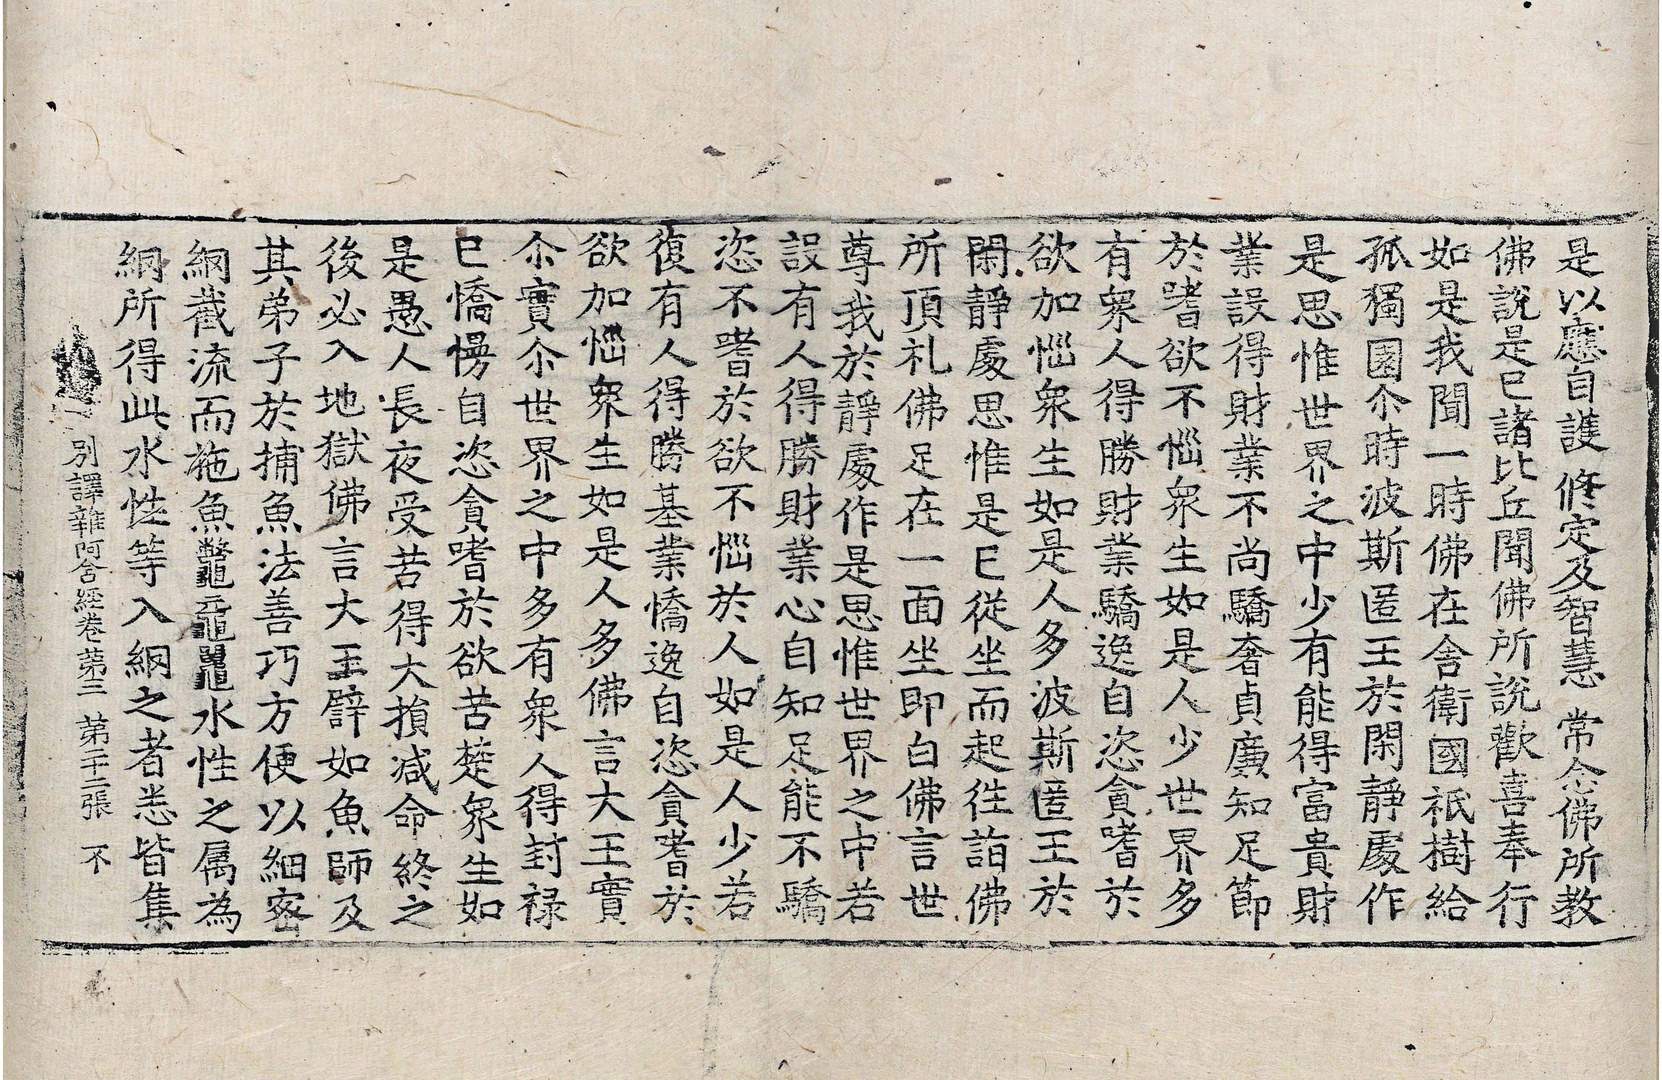 是以應自護 修定及智慧 常念佛所教
佛說是已諸比丘聞佛所說歡喜奉行
如是我聞一時佛在舍衛國祇樹給
孤獨園尒時波斯匿王於閑靜處作
是思惟世界之中少有能得富貴財
業設得財業不尚驕奢貞廣知足節
於嗜欲不惱衆生如是人少世界多
有衆人得勝財業驕逸自恣貪嗜於
欲加惱衆生如是人多波斯匿王於
閑靜處思惟是已從坐而起往詣佛
所頂礼佛足在一面坐即白佛言世
尊我於靜處作是思惟世界之中若
設有人得勝財業心自知足能不驕
恣不嗜於欲不惱於人如是人少若
復有人得勝基業憍逸自恣貪嗜於
欲加惱衆生如是人多佛言大王實
尒實尒世界之中多有衆人得封禄
已憍慢自恣貪嗜於欲苦楚衆生如
是愚人長夜受苦得大損減命終之
後必入地獄佛言大王譬如魚師及
其弟子於捕魚法善巧方便以細密
網截流而拖魚鼈黿鼉水性之属為
網所得此水性等入網之者悉皆集
別譯雜阿含經卷第三 第二十二張 不